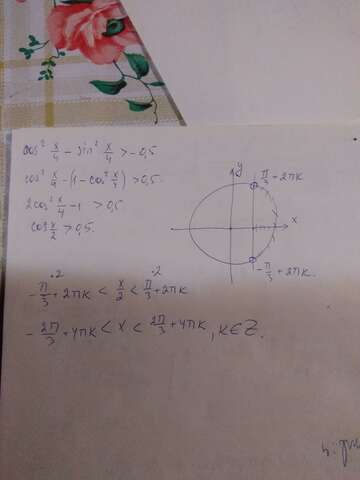 cos² x/4 - sin² x/4 > -0,5
cos² x/4 - (1 - cos² x/4) > 0,5.
2cos² x/4 - 1 > 0,5
cos x/2 > 0,5.
y
π/3 - 2πK
x
-π/3 + 2πK.
·2 ·2
-π/3 + 2πK < x/2 < π/3 + 2πK
-2π/3 + 4πK < x < 2π/3 + 4πK, K∈Z.